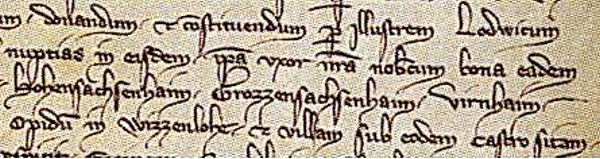 um donandum et cōstituendum p illustrem Lodwicum
nuptias in eisdem ip̄a vxor nr̄a nobcum bona eadem
Hohensachsenhaim Grozzensachsenhaim virnhaim
Opidū in Wizzenloh et villam sub eodem castro sitam